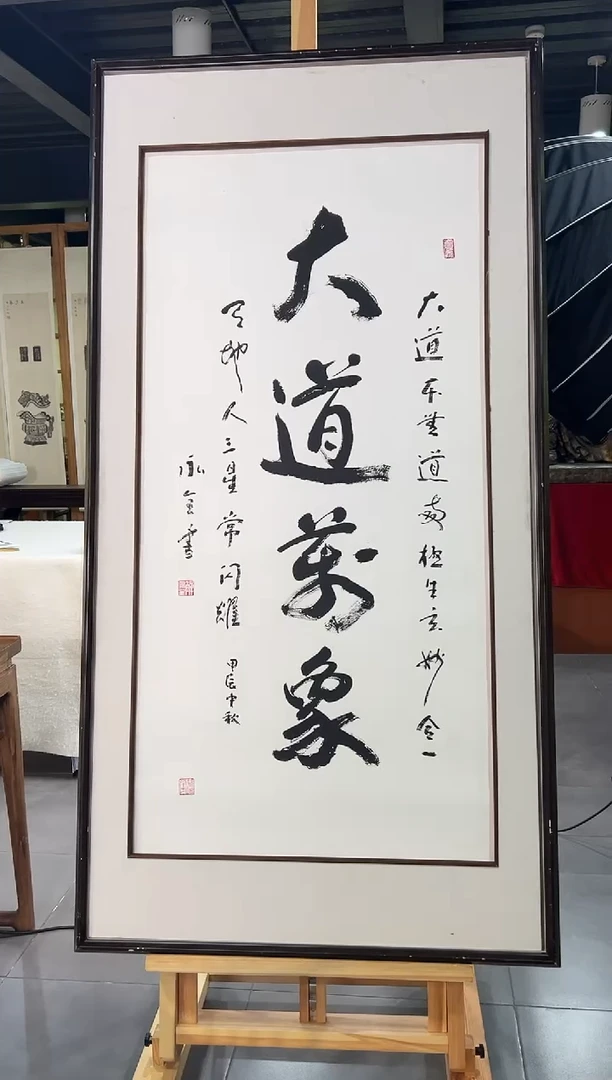 大道萬象
大道本無道兩極生玄妙合一
天地人三星常闪耀 甲辰中秋
永金書